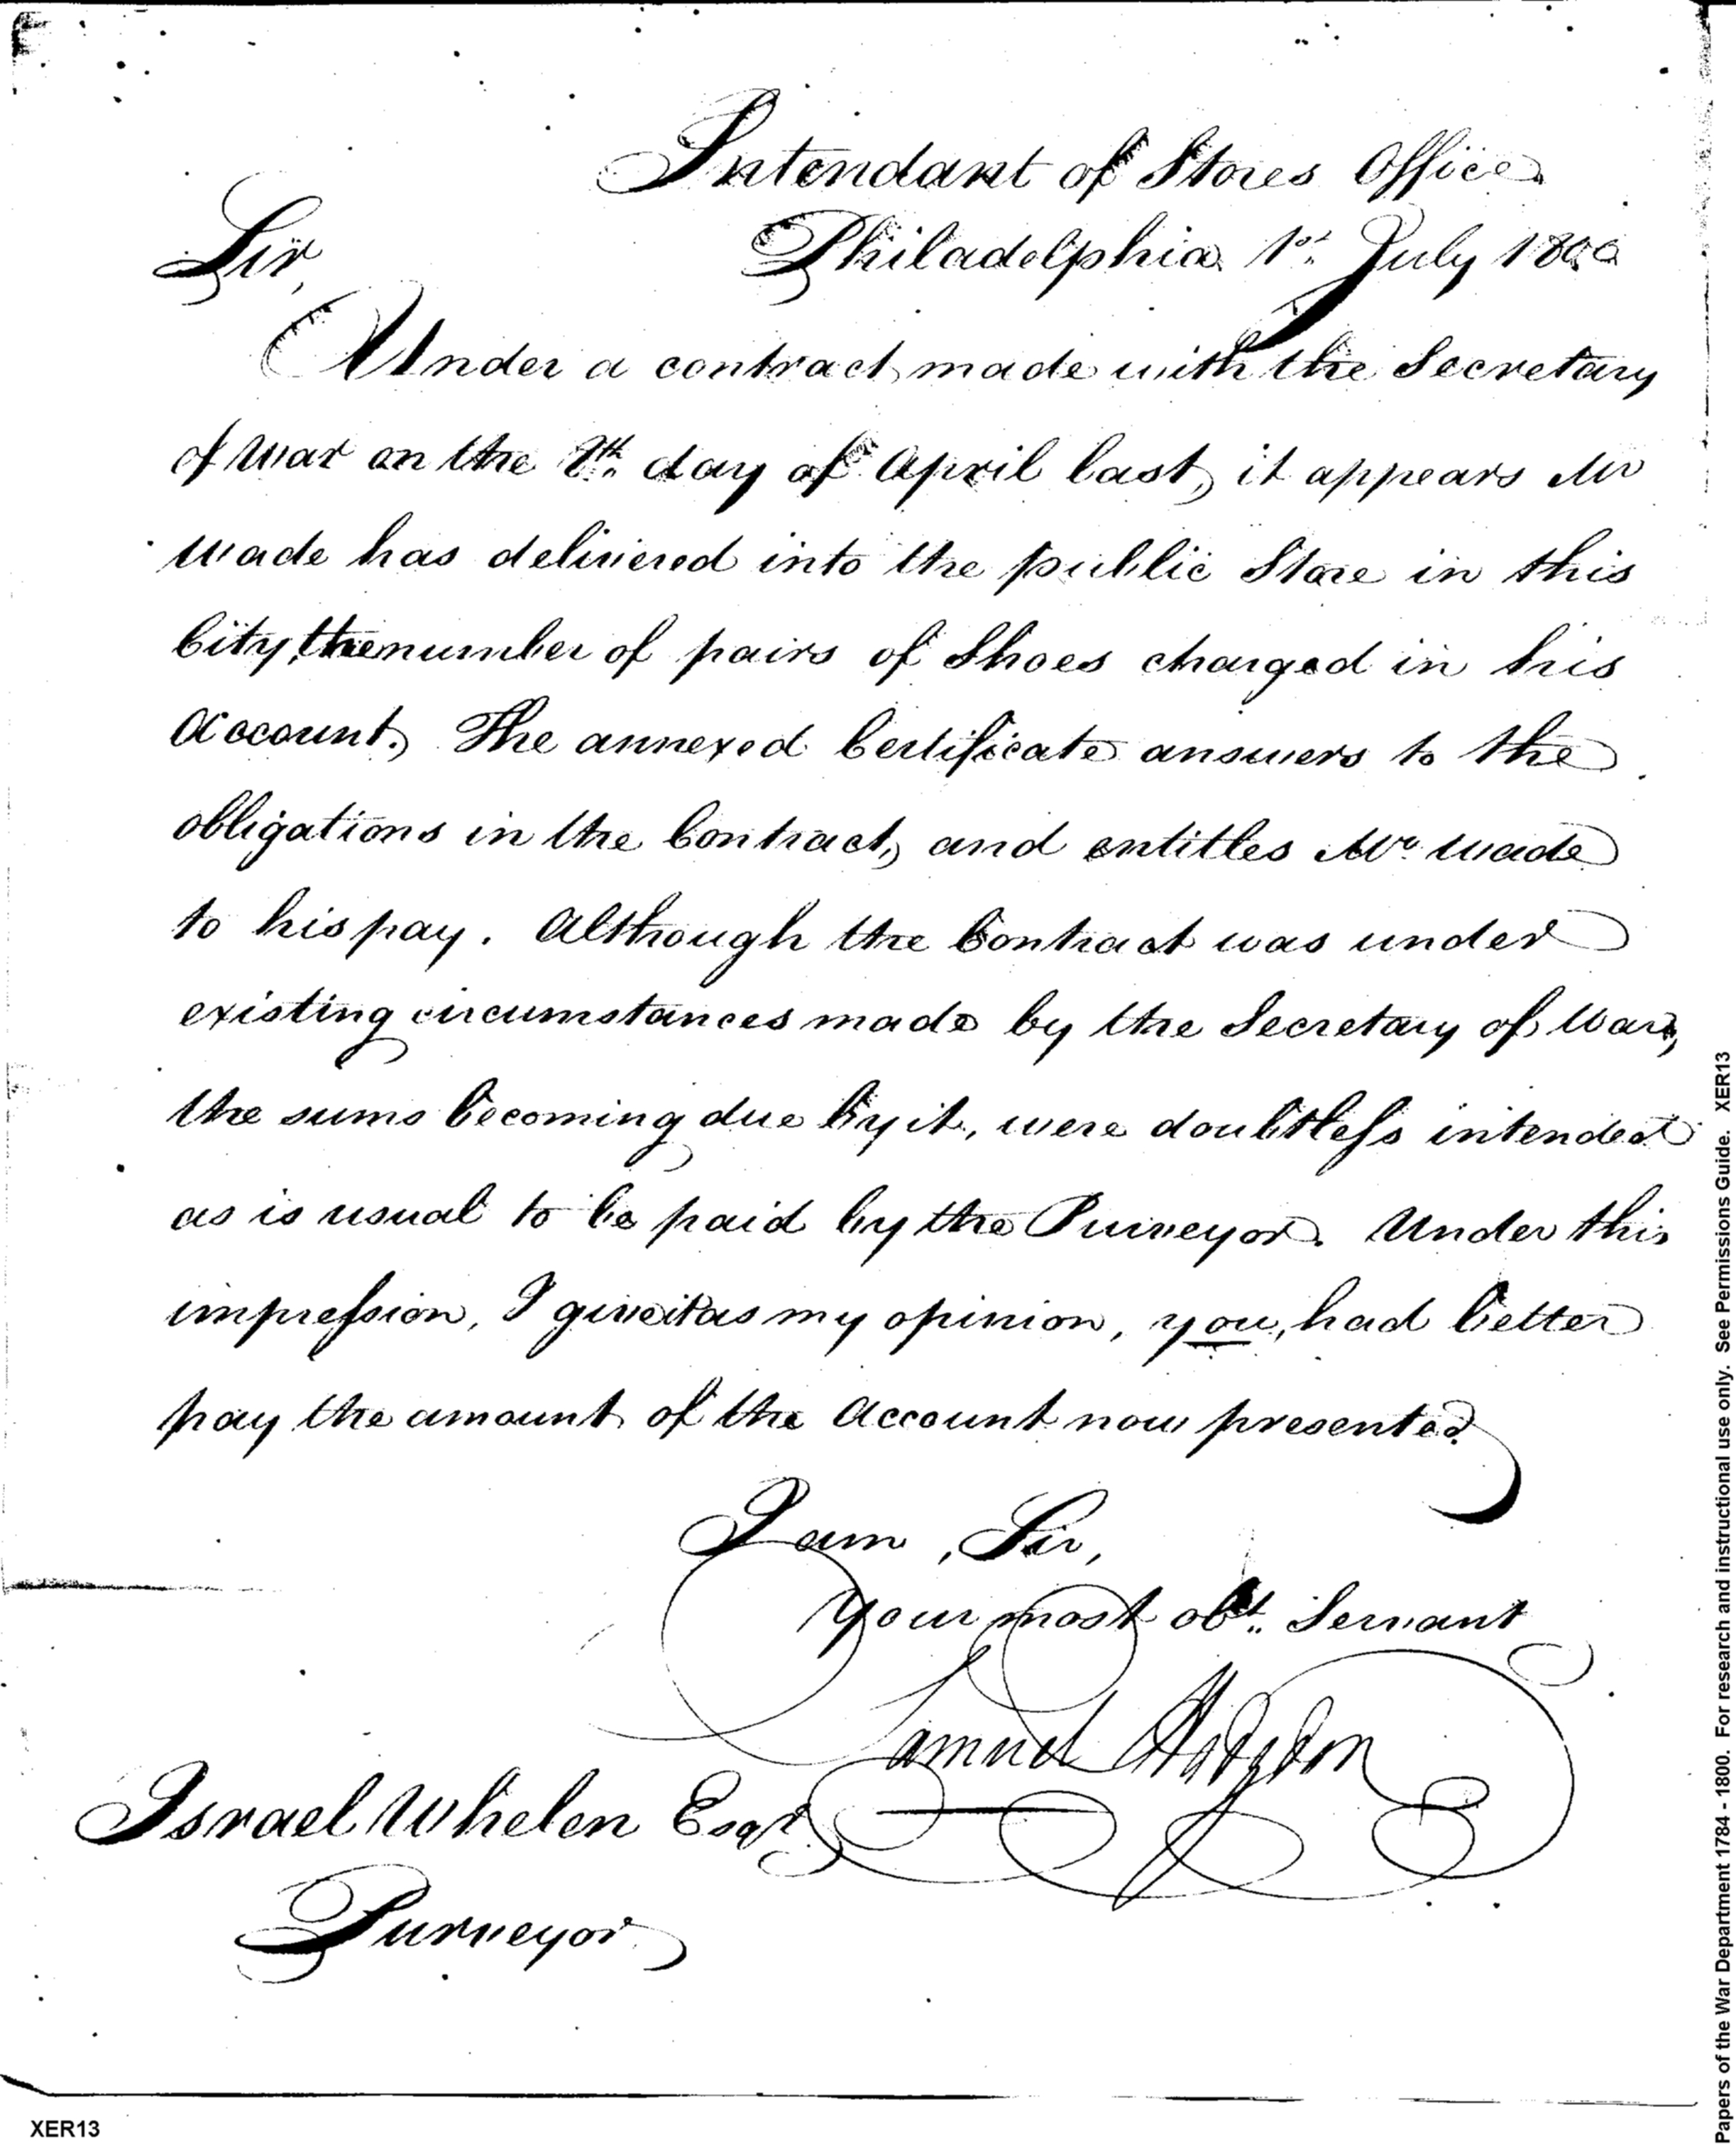 Intendant of Stores Office
Philadelphia 1st. July 1800
Sir,
Under a contract made with the Secretary
of War on the 8th. day of April last, it appears Mr
Wade has delivered into the public Store in this
City, the number of pairs of Shoes charged in his
Account. The annexed Certificate answers to the
obligations in the Contract, and entitles Mr. Wade
to his pay. Although the Contract was under
existing circumstances made by the Secretary of War,
the sums becoming due by it, were doubtless intended
as is usual to be paid by the Purveyor. Under this
impression, I give it as my opinion, you, had better
pay the amount of the Account now presented
I am, Sir,
Your most obt. Servant
Samuel Hodgdon
Israel Whelen Esqr.
Purveyor
XER13
Papers of the War Department 1784 - 1800. For research and instructional use only. See Permissions Guide. XER13